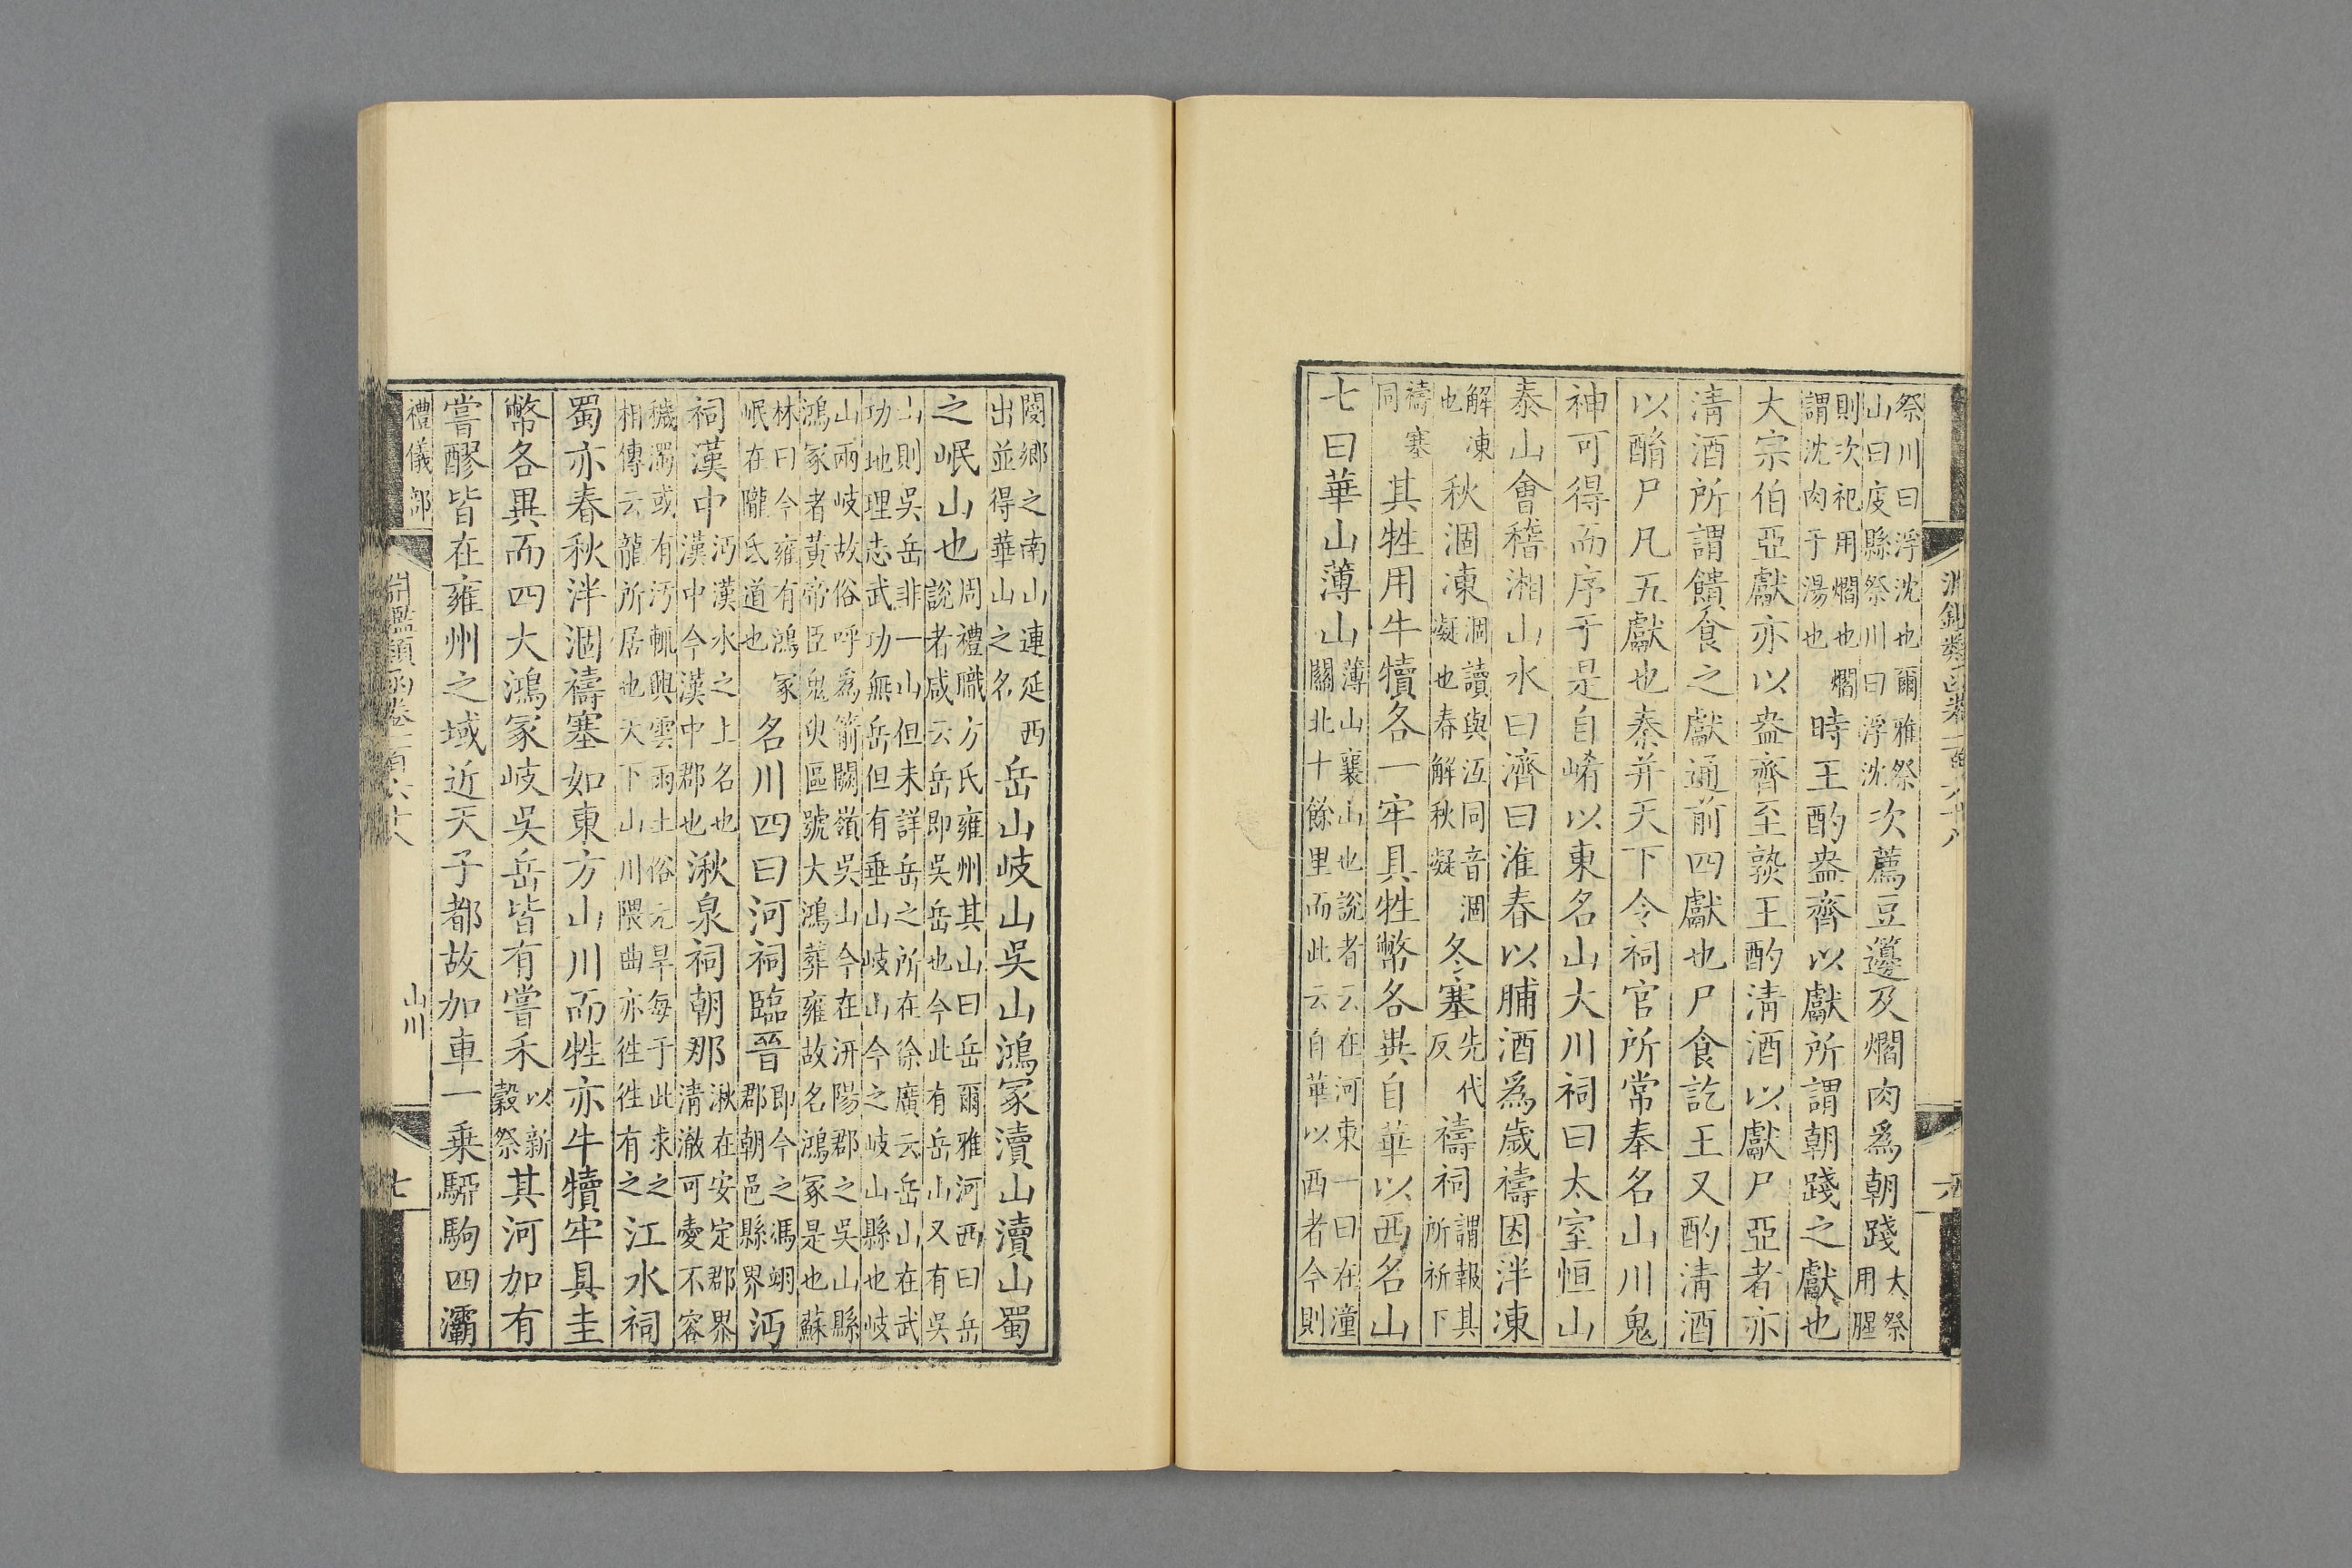 祭川曰浮沈也爾雅祭山曰庋縣祭川曰浮沈次薦豆籩及爓肉爲朝踐大祭用腥
則次祀用爓也爓謂沈肉于湯也時王酌盎齊以獻所謂朝踐之獻也
大宗伯亞獻亦以盎齊至孰王酌淸酒以獻尸亞者亦
淸酒所謂饋食之獻通前四獻也尸食訖王又酌淸酒
以酳尸凡五獻也秦并天下令祠官所常奉名山川鬼
神可得而序于是自崤以東名山大川祠曰太室恒山
泰山會稽湘山水曰濟曰淮春以脯酒爲歲禱因泮凍
解凍也秋涸凍涸讀與沍同音涸凝也春解秋凝冬塞先代反禱祠謂報其所祈下
禱塞同其牲用牛犢各一牢具牲幣各異自華以西名山
七曰華山薄山薄山襄山也說者云在河東一曰在潼關北十餘里而此云自華以西者今則
閿鄉之南山連延西出並得華山之名岳山岐山吳山鴻冢瀆山瀆山蜀
之岷山也周禮職方氏雍州其山曰岳爾雅河西曰岳說者咸云岳即吳岳也今此有岳山又有吳
山則吳岳非一山但未詳岳之所在徐廣云岳山在武功地理志武功無岳但有垂山岐山今之岐山縣也岐
山兩岐故俗呼爲箭闕嶺吳山今在汧陽郡之吳山縣鴻冢者黃帝臣鬼臾區號大鴻葬雍故名鴻冢是也蘇
林曰今雍有鴻冢岷在隴氐道也名川四曰河祠臨晉即今之馮翊郡朝邑縣界沔
祠漢中沔漢水之上名也漢中今漢中郡也湫泉祠朝那湫在安定郡界淸澈可愛不容
穢濁或有汚輒興雲雨土俗亢旱每于此求之相傳云龍所居也天下山川隈曲亦徃徃有之江水祠
蜀亦春秋泮涸禱塞如東方山川而牲亦牛犢牢具圭
幣各異而四大鴻冢岐吳岳皆有嘗禾以新穀祭其河加有
嘗醪皆在雍州之域近天子都故加車一乗駵駒四灞
禮儀部
淵鑑類函卷一百六十八
山川
七